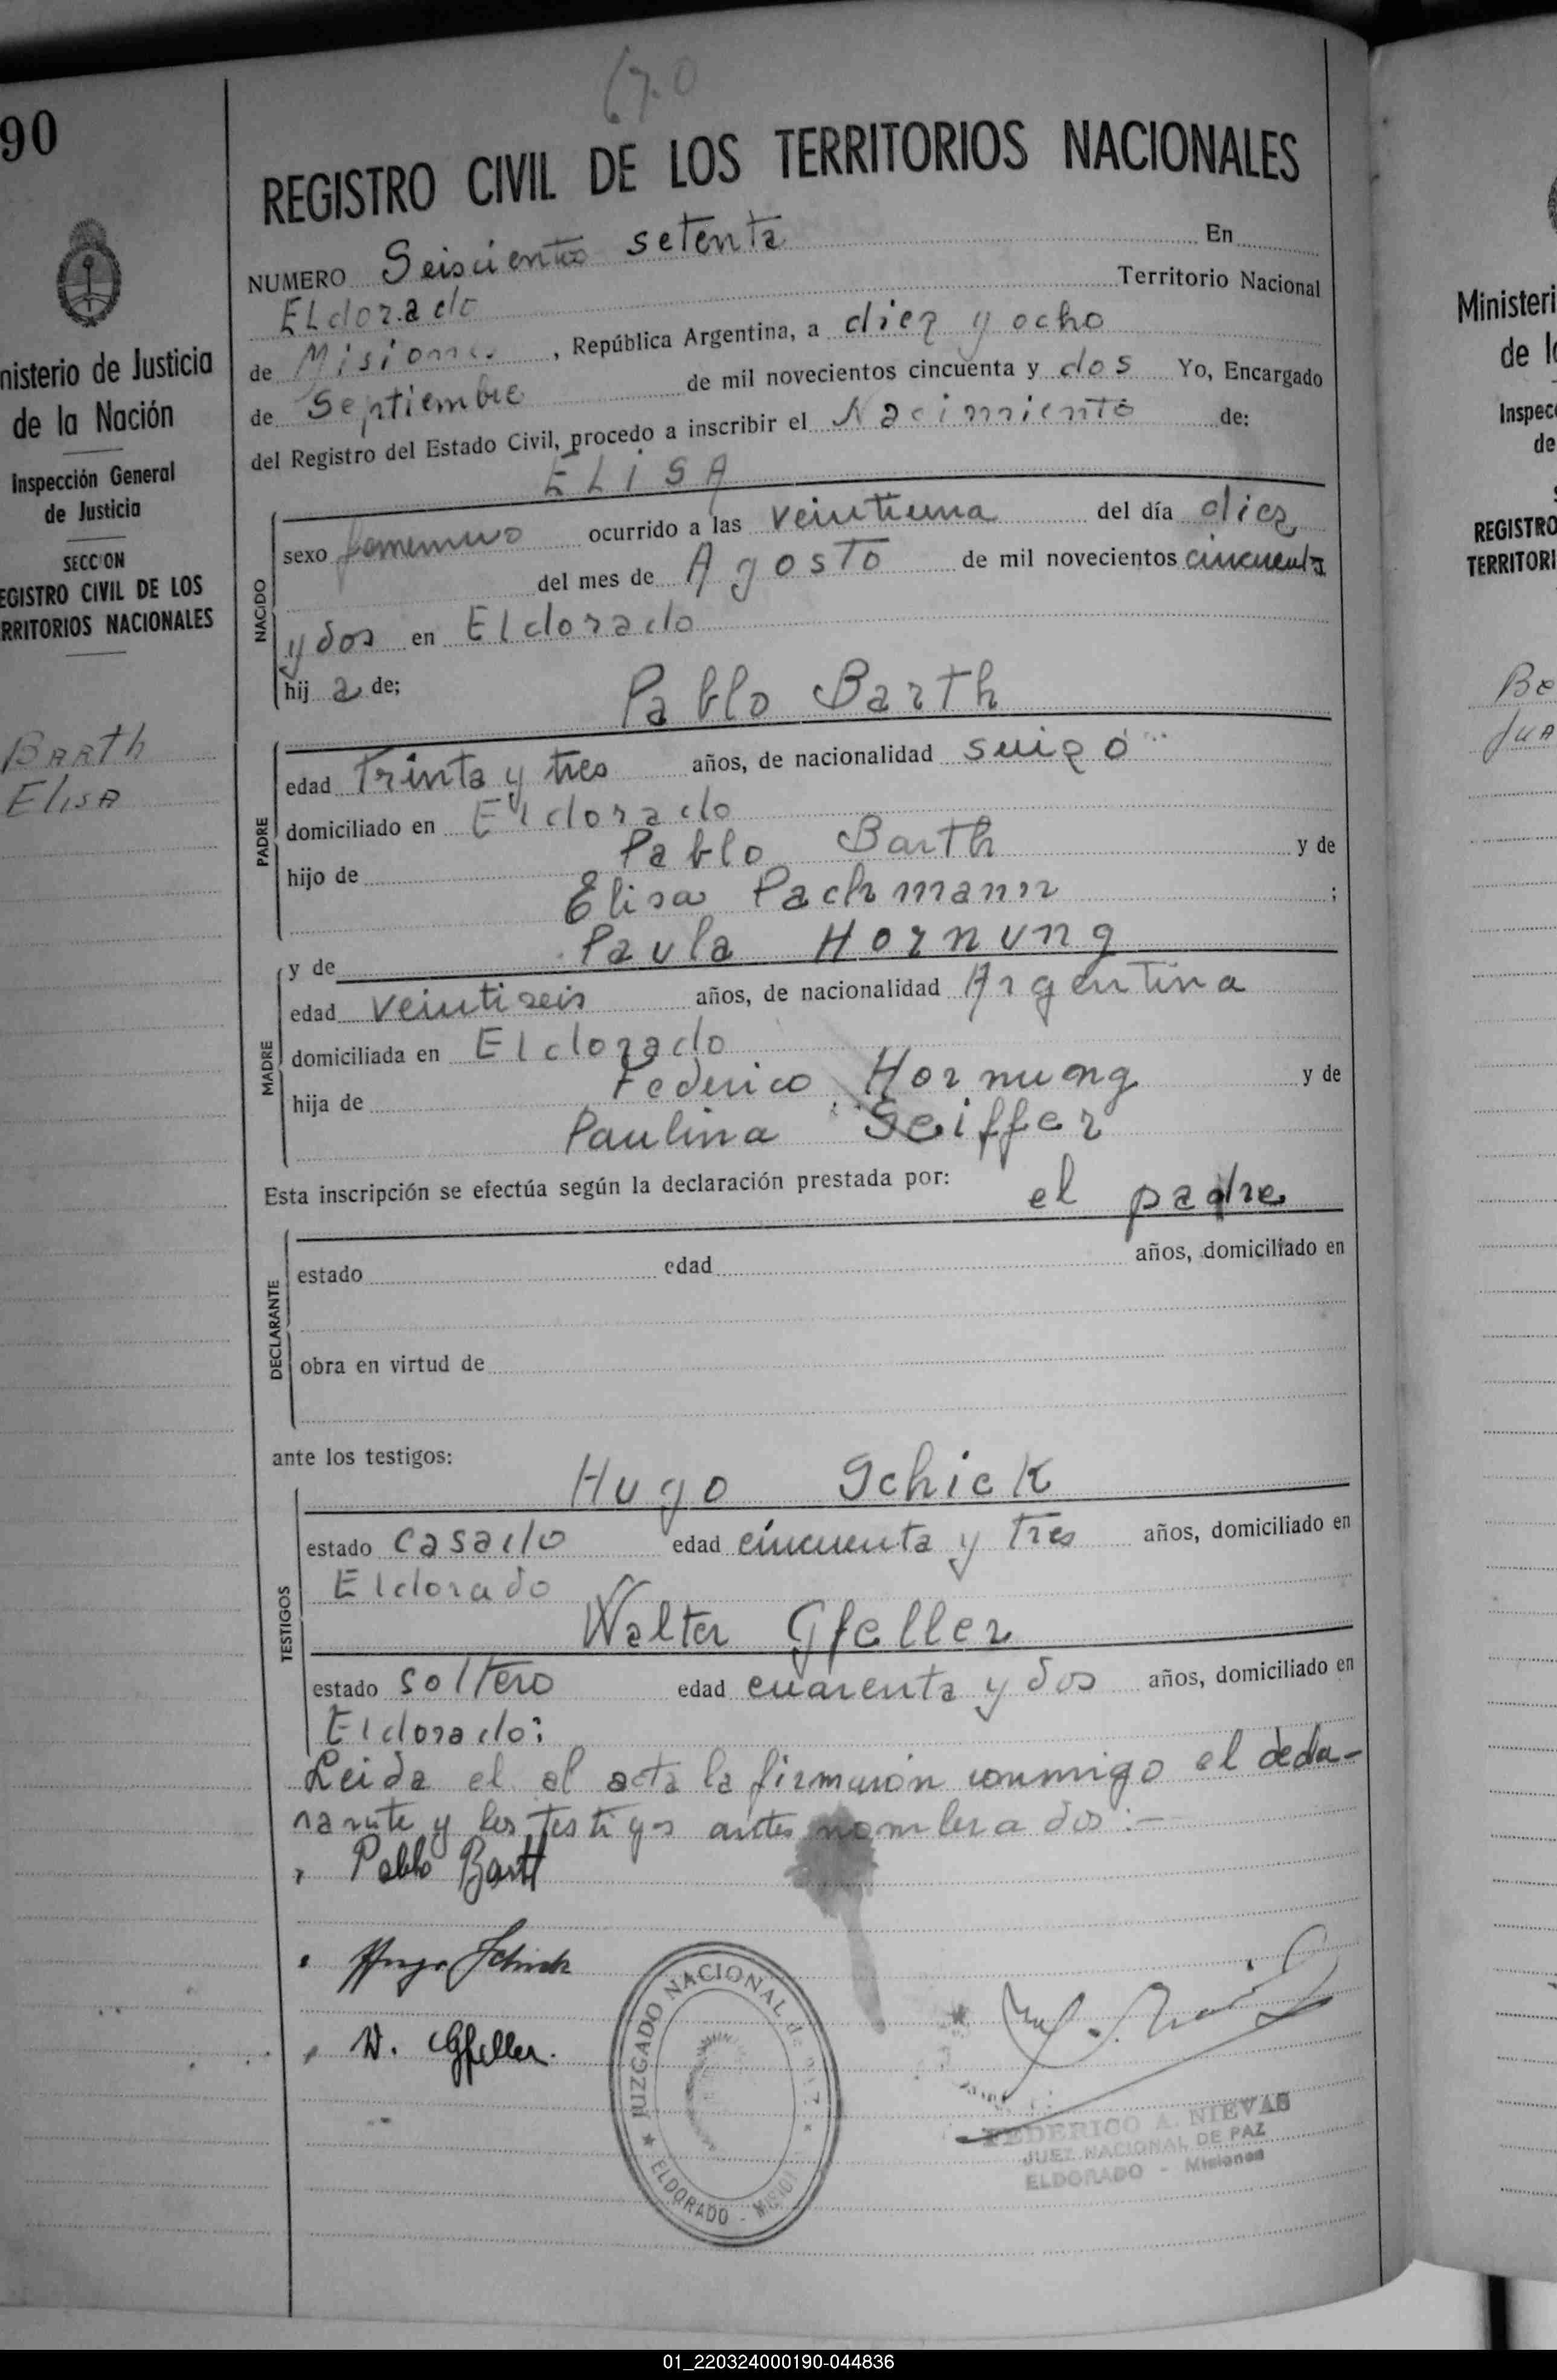 670
90
REGISTRO CIVIL DE LOS TERRITORIOS NACIONALES
NUMERO Seiscientos setenta En
Eldorado Territorio Nacional
de Misiones, República Argentina, a diez y ocho
de Septiembre de mil novecientos cincuenta y dos Yo, Encargado
del Registro del Estado Civil, procedo a inscribir el Nacimiento de:
ELISA
NACIDO
sexo femenino ocurrido a las veintiuna del día diez
del mes de Agosto de mil novecientos cincuenta
y dos en Eldorado
hij a de;
Pablo Barth
PADRE
edad Trinta y tres años, de nacionalidad suizo
domiciliado en Eldorado
hijo de Pablo Barth y de
Elisa Pachmann ;
y de Paula Hornung
MADRE
edad veintiseis años, de nacionalidad Argentina
domiciliada en Eldorado
hija de Federico Hornung y de
Paulina Seiffer
Esta inscripción se efectúa según la declaración prestada por: el padre
DECLARANTE
estado edad años, domiciliado en
obra en virtud de
ante los testigos:
Hugo Schick
TESTIGOS
estado casado edad cincuenta y Tres años, domiciliado en
Eldorado
Walter Gfeller
estado soltero edad cuarenta y dos años, domiciliado en
Eldorado:
Leida el el acta la firmaron conmigo el decla-
rante y los testigos antes nombrados:-
Pablo Barth
Hugo Schick
W. Gfeller.
JUZGADO NACIONAL de PAZ
ELDORADO - Misiones
FEDERICO A. NIEVAS
JUEZ NACIONAL DE PAZ
ELDORADO - Misiones
nisterio de Justicia
de la Nación
Inspección General
de Justicia
SECCION
EGISTRO CIVIL DE LOS
RRITORIOS NACIONALES
Barth
Elisa
Ministeri
de l
Inspec
de
REGISTRO
TERRITORI
Ba
Jua
01_220324000190-044836